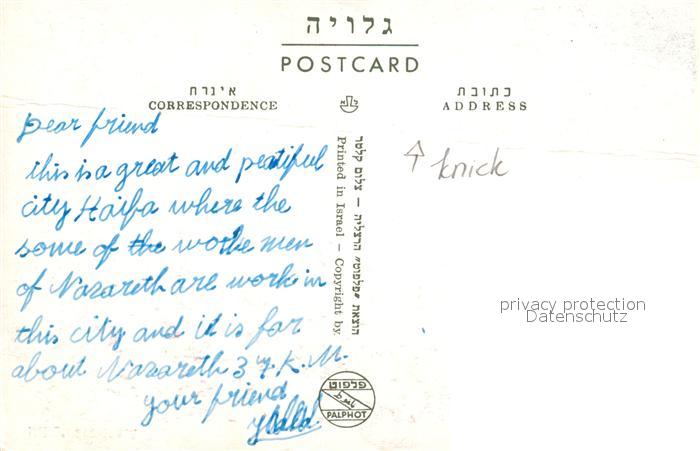 גלויה
POSTCARD
אינרת
CORRESPONDENCE
כתובת
ADDRESS
Dear friend
this is a great and peatiful
city Haifa where the
some of the worke men
of Nazareth are work in
this city and it is far
about Nazareth 37. K.M.
your friend
knick
הוצאת "פלפוט" הרצליה — צלום קלטר
Printed in Israel — Copyright by
פלפוט
PALPHOT
privacy protection
Datenschutz